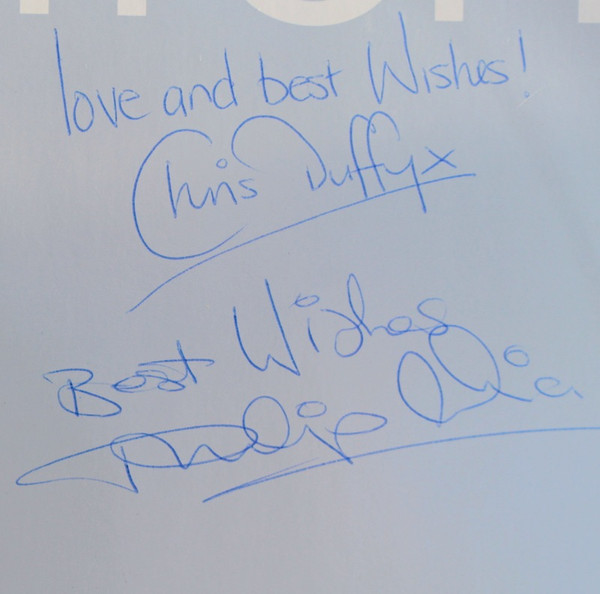 love and best Wishes!
Chris Duffy x
Best Wishes
Philip